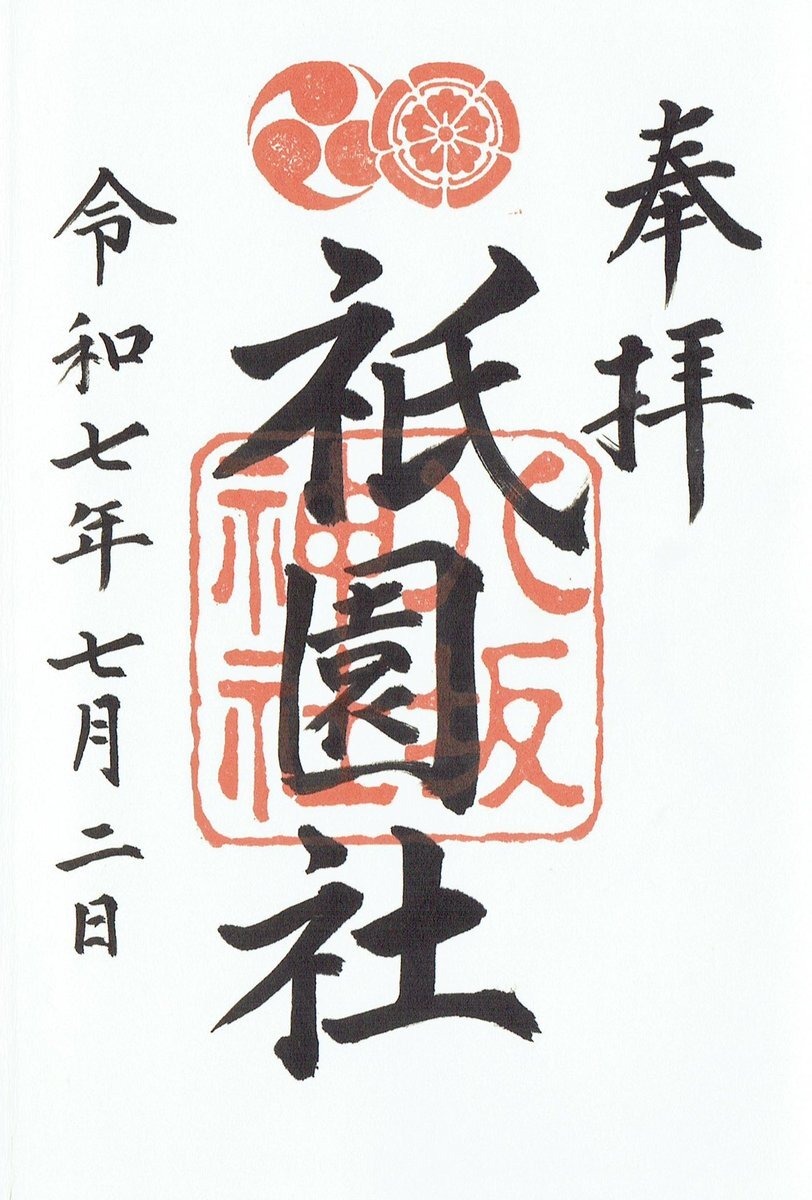 奉拝
祇園社
八坂神社
令和七年七月二日